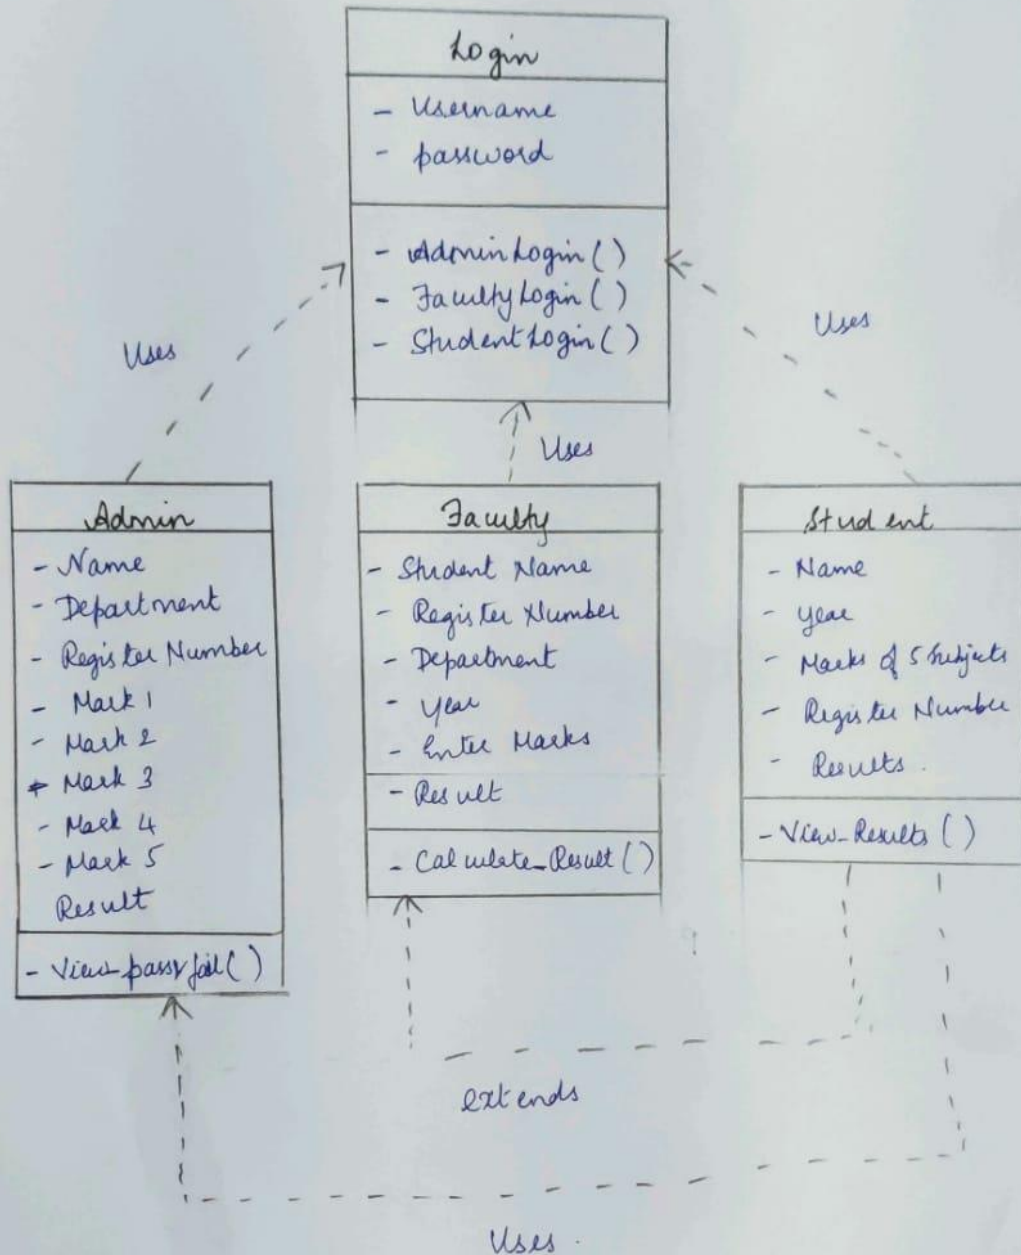 Login
- Username
- password
- AdminLogin()
- FacultyLogin()
- StudentLogin()
Uses
Uses
Uses
Admin
- Name
- Department
- Register Number
- Mark 1
- Mark 2
- Mark 3
- Mark 4
- Mark 5
Result
- View_pass/fail()
Faculty
- Student Name
- Register Number
- Department
- Year
- Enter Marks
- Result
- Calculate_Result()
Student
- Name
- Year
- Marks of 5 Subjects
- Register Number
- Results.
- View_Results()
extends
Uses.